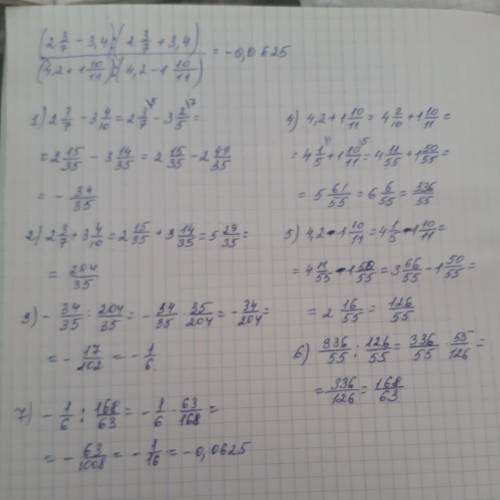 (2 3/7 - 3,4) : (2 3/7 + 3,4)
(4,2 + 1 10/11) : (4,2 - 1 10/11) = -0,0625
1) 2 3/7 - 3 4/10 = 2 3/7 - 3 2/5 =
= 2 15/35 - 3 14/35 = 2 15/35 - 2 49/35
= - 34/35
2) 2 3/7 + 3 4/10 = 2 15/35 + 3 14/35 = 5 29/35 =
= 204/35
3) - 34/35 : 204/35 = - 34/35 · 35/204 = - 34/204 =
= - 17/102 = - 1/6
4) 4,2 + 1 10/11 = 4 2/10 + 1 10/11 =
= 4 1/5 + 1 10/11 = 4 11/55 + 1 50/55 =
= 5 61/55 = 6 6/55 = 336/55
5) 4,2 - 1 10/11 = 4 1/5 - 1 10/11 =
= 4 11/55 - 1 50/55 = 3 66/55 - 1 50/55 =
= 2 16/55 = 126/55
6) 336/55 : 126/55 = 336/55 · 55/126 =
= 336/126 = 168/63
7) - 1/6 : 168/63 = - 1/6 · 63/168 =
= - 63/1008 = - 1/16 = -0,0625